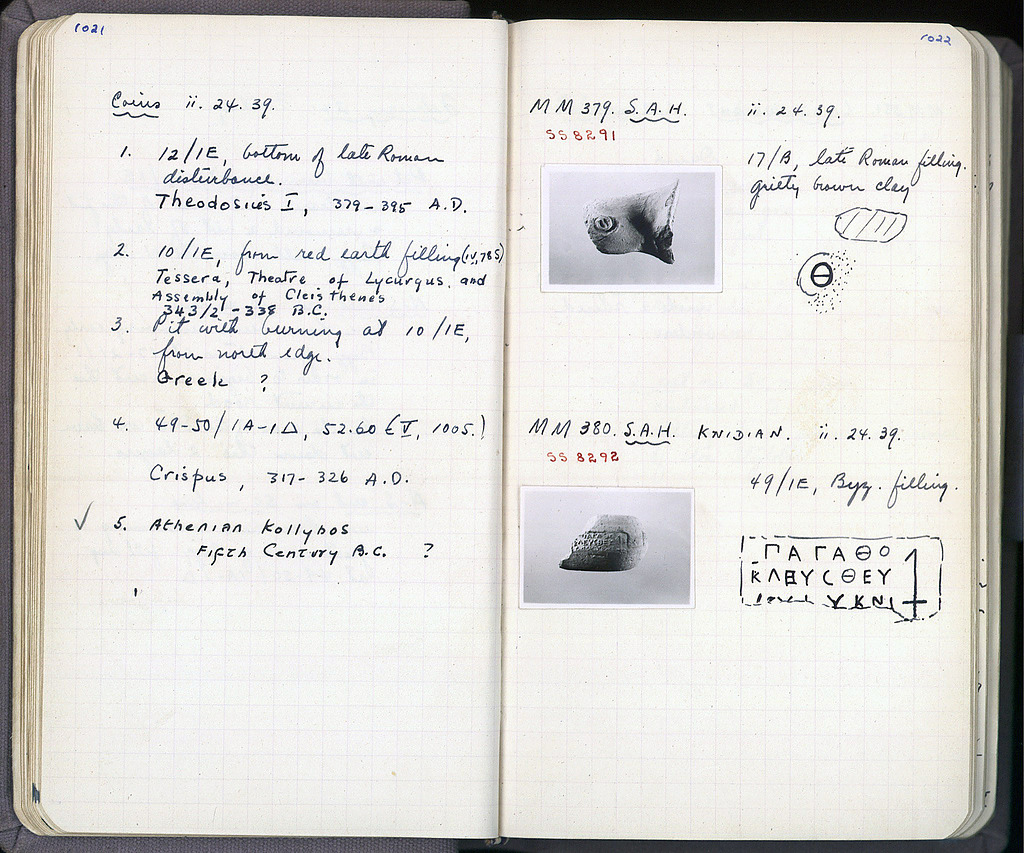 1021
Coins ii. 24. 39.
1. 12/1E, bottom of late Roman
disturbance.
Theodosius I, 379-395 A.D.
2. 10/1E, from red earth filling (IV, 785)
Tessera, Theatre of Lycurgus, and
Assembly of Cleisthenes
343/2 - 338 B.C.
3. Pit with burning at 10/1E,
from north edge.
Greek ?
4. 49-50/1A-1Δ, 52.60 (V, 1005.)
Crispus, 317-326 A.D.
✓ 5. Athenian Kollybos
Fifth Century B.C. ?
1022
MM 379. S.A.H. ii. 24. 39.
SS 8291
17/B, late Roman filling.
gritty brown clay
Θ
MM 380. S.A.H. KNIDIAN. ii. 24. 39.
SS 8292
49/1E, Byz. filling.
ΓΑΓΑΘΟ
ΚΛΕΥϹΘΕΥ
ΥΚΝΙ